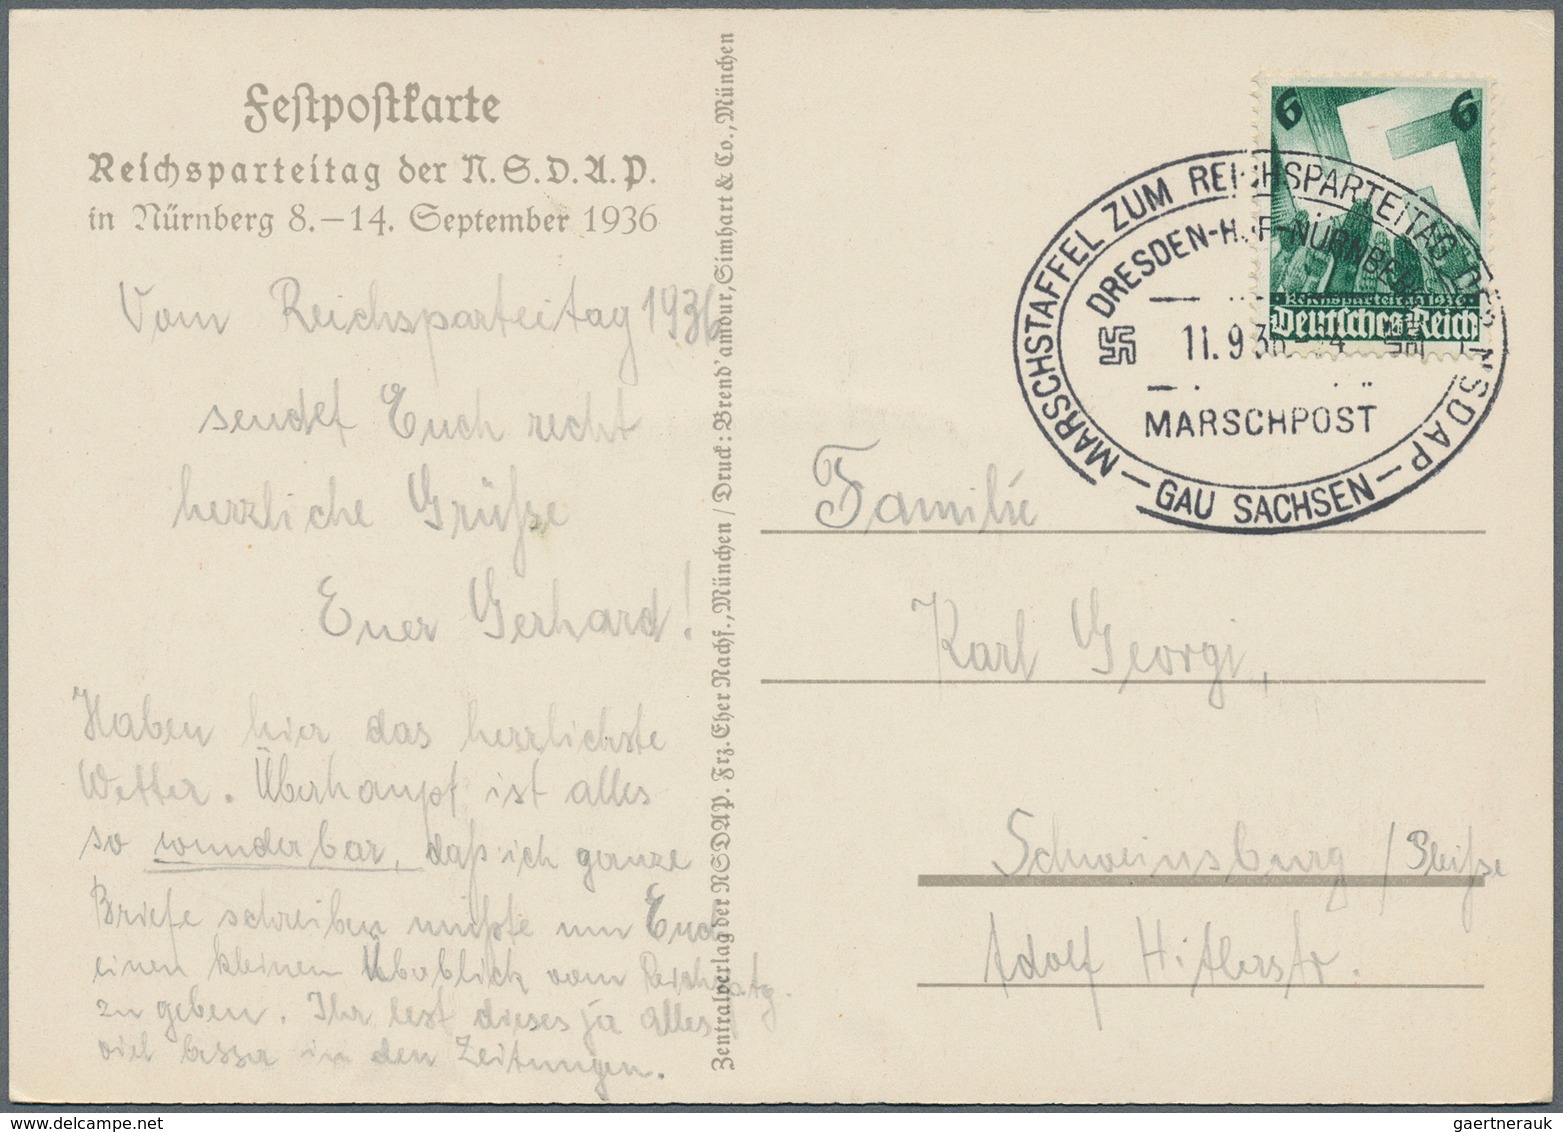 Festpostkarte
Reichsparteitag der N.S.D.A.P.
in Nürnberg 8.–14. September 1936
Vom Reichsparteitag 1936
sendet Euch recht
herzliche Grüße
Euer Gerhard!
Haben hier das herrlichste
Wetter. Überhaupt ist alles
so wunderbar, daß ich ganze
Briefe schreiben müßte um Euch
einen kleinen Überblick vom Reichsptg.
zu geben. Ihr lest dieses ja alles
viel besser in den Zeitungen.
Zentralverlag der NSDAP. Frz. Eher Nachf., München / Druck: Brend'amour, Simhart & Co., München
6 6
Reichsparteitag 1936
Deutsches Reich
MARSCHSTAFFEL ZUM REICHSPARTEITAG DER NSDAP
DRESDEN-HOF-NÜRNBERG
11.9.36
MARSCHPOST
— GAU SACHSEN —
Familie
Karl Georgi,
Schweinsburg / Pleiße
Adolf Hitlerstr.
gaertnerauk